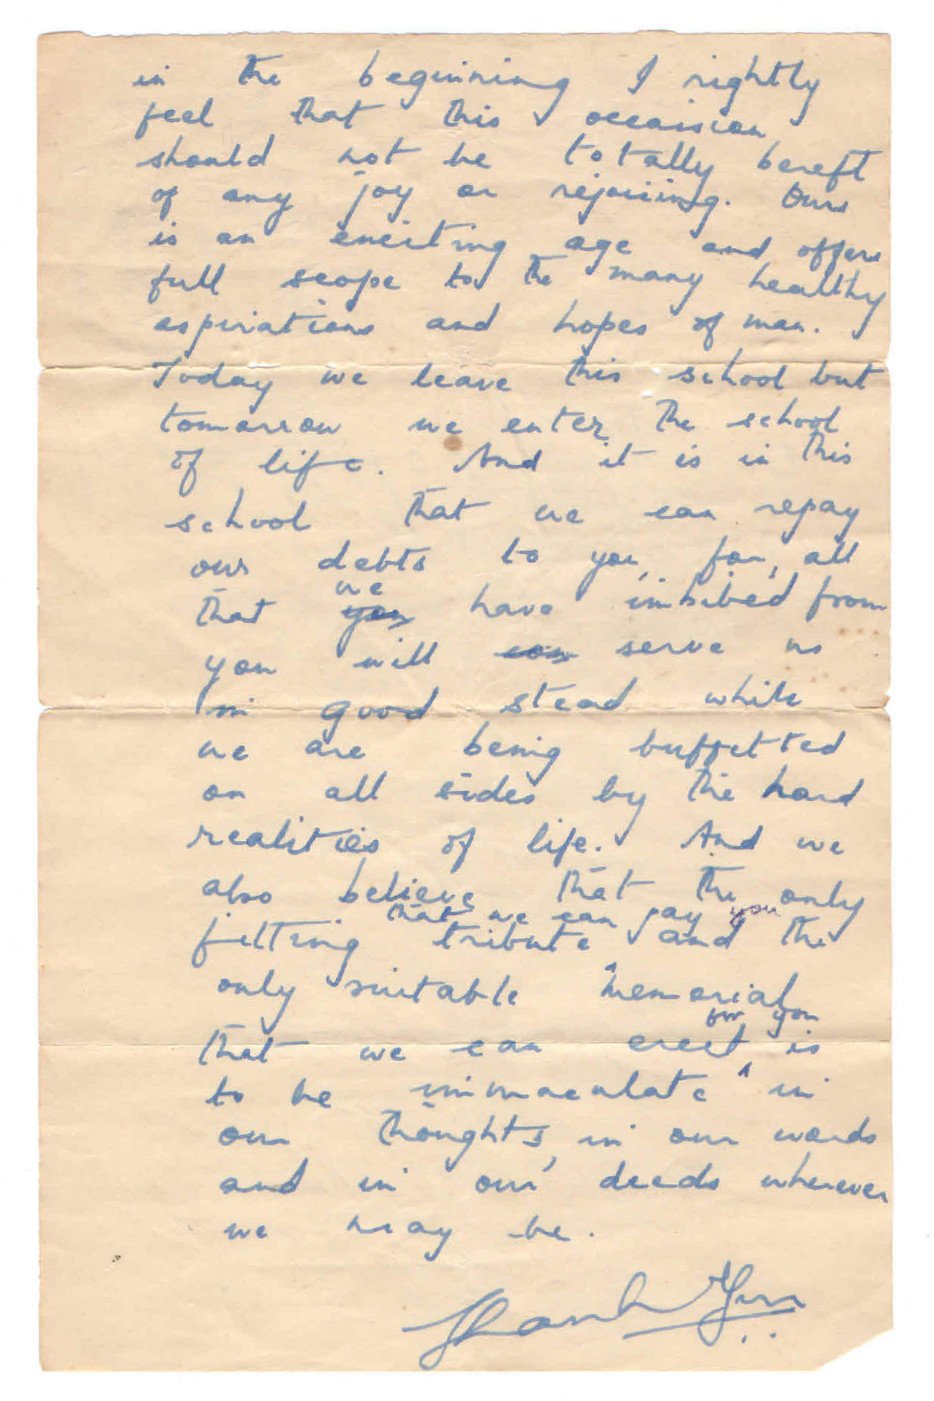 in the beginning I rightly
feel that this occaision
should not be totally bereft
of any joy or rejoicing. Ours
is an exciting age and offers
full scope to the many healthy
aspirations and hopes of man.
Today we leave this school but
tomorrow we enter the school
of life. And it is in this
school that we can repay
our debts to you, for, all
we
that you have imbibed from
you will can serve us
in good stead while
we are being buffetted
on all sides by the hard
realities of life. And we
also believe that the only
that we can pay you
fitting tribute and the
only suitable memorial
for you
that we can erect is
to be immaculate in
our thoughts, in our words
and in our deeds wherever
we may be.
Thank You